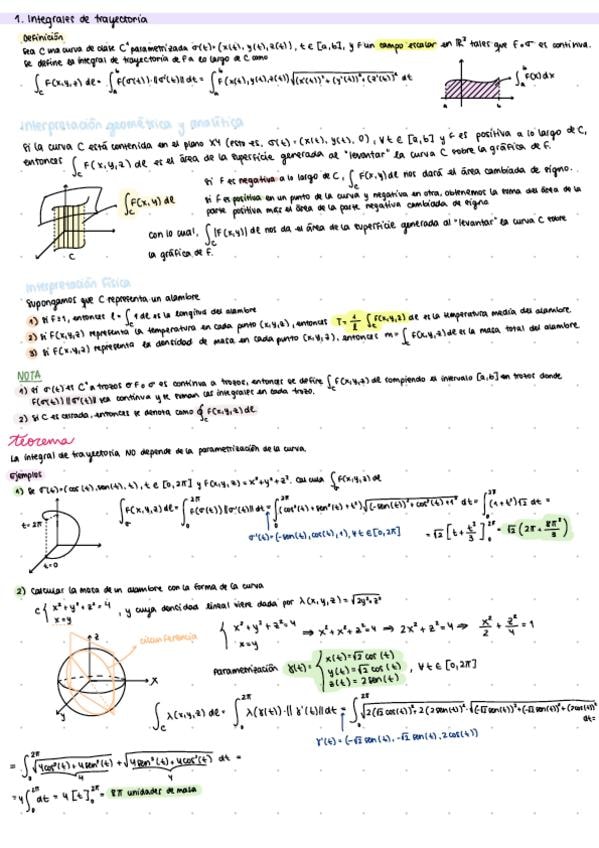 1. Integrales de trayectoria
Definición
Sea C una curva de clase C¹ parametrizada σ(t)=(x(t), y(t), z(t)), t∈[a,b], y F un campo escalar en ℝ³ tales que F∘σ es continua.
Se define la integral de trayectoria de F a lo largo de C como
∫_C F(x,y,z) dl = ∫_a^b F(σ(t))·||σ'(t)|| dt = ∫_a^b F(x(t), y(t), z(t)) √((x'(t))²+(y'(t))²+(z'(t))²) dt
a b ∫_a^b F(x)dx
Interpretación geométrica y analítica
Si la curva C está contenida en el plano XY (esto es, σ(t)=(x(t), y(t), 0), ∀t∈[a,b] y F es positiva a lo largo de C,
entonces ∫_C F(x,y,z) dl es el área de la superficie generada al "levantar" la curva C sobre la gráfica de F.
∫_C F(x,y) dl
C
Si F es negativa a lo largo de C, ∫_C F(x,y,z) dl nos dará el área cambiada de signo.
Si F es positiva en un punto de la curva y negativa en otra, obtenemos la suma del área de la
parte positiva más el área de la parte negativa cambiada de signo
con lo cual, ∫_C |F(x,y)| dl nos da el área de la superficie generada al "levantar" la curva C sobre
la gráfica de F.
Interpretación física
Supongamos que C representa un alambre
1) Si F=1, entonces l = ∫_C 1 dl es la longitud del alambre
2) Si F(x,y,z) representa la temperatura en cada punto (x,y,z), entonces T = 1/l ∫_C F(x,y,z) dl es la temperatura media del alambre.
3) Si F(x,y,z) representa la densidad de masa en cada punto (x,y,z), entonces m = ∫_C F(x,y,z) dl es la masa total del alambre.
NOTA
1) Si σ(t) es C¹ a trozos o F∘σ es continua a trozos, entonces se define ∫_C F(x,y,z) dl rompiendo el intervalo [a,b] en trozos donde
F(σ(t)) ||σ'(t)|| sea continua y se suman las integrales en cada trozo.
2) Si C es cerrada, entonces se denota como ∮_C F(x,y,z) dl
Teorema
La integral de trayectoria NO depende de la parametrización de la curva.
Ejemplos
1) Se σ(t)=(cos(t), sen(t), t), t∈[0,2π] y F(x,y,z)=x²+y²+z². Calcula ∫_C F(x,y,z) dl
t=2π
t=0
∫_σ F(x,y,z) dl = ∫_0^{2π} F(σ(t)) ||σ'(t)|| dt = ∫_0^{2π} (cos²(t)+sen²(t)+t²) √((-sen(t))²+cos²(t)+1²) dt = ∫_0^{2π} (1+t²)√2 dt =
σ'(t)=(-sen(t), cos(t), 1), ∀t∈[0,2π]
= √2 [t + t³/3]_0^{2π} = √2 (2π + 8π³/3)
2) Calcular la masa de un alambre con la forma de la curva
C { x²+y²+z²=4
x=y
, y cuya densidad lineal viene dada por λ(x,y,z)=√(2y²+z²)
circunferencia
Z
X
Y
{ x²+y²+z²=4
x=y
⇒ x²+x²+z²=4 ⇒ 2x²+z²=4 ⇒ x²/2 + z²/4 = 1
Parametrización γ(t) = { x(t)=√2 cos(t)
y(t)=√2 cos(t)
z(t)=2 sen(t)
, ∀t∈[0,2π]
∫_C λ(x,y,z) dl = ∫_0^{2π} λ(γ(t))·||γ'(t)|| dt =
γ'(t)=(-√2 sen(t), -√2 sen(t), 2cos(t))
=4∫_0^{2π} dt = 4[t]_0^{2π} = 8π unidades de masa